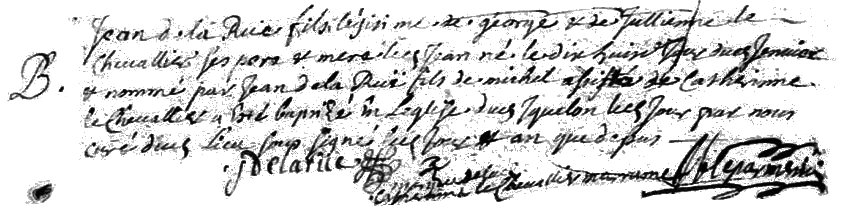 Jean de la Rue fils légisime de george & de Jullienne le
B. Chevallier ses pere & mere led Jean né le dix huit Jour dud Jenvier
& nommé par Jean de la Rue fils de michel assisté de Catherinne
le Chevallier a esté baptizé En Leglise dud led Jour par nous
curé dud Lieu soup signé led Jour & an que depus
J Delarue
Catherinne le Chevallier maraine